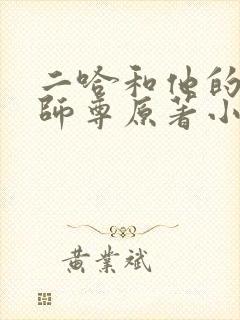 二哈和他的
師尊原著小
黄業斌